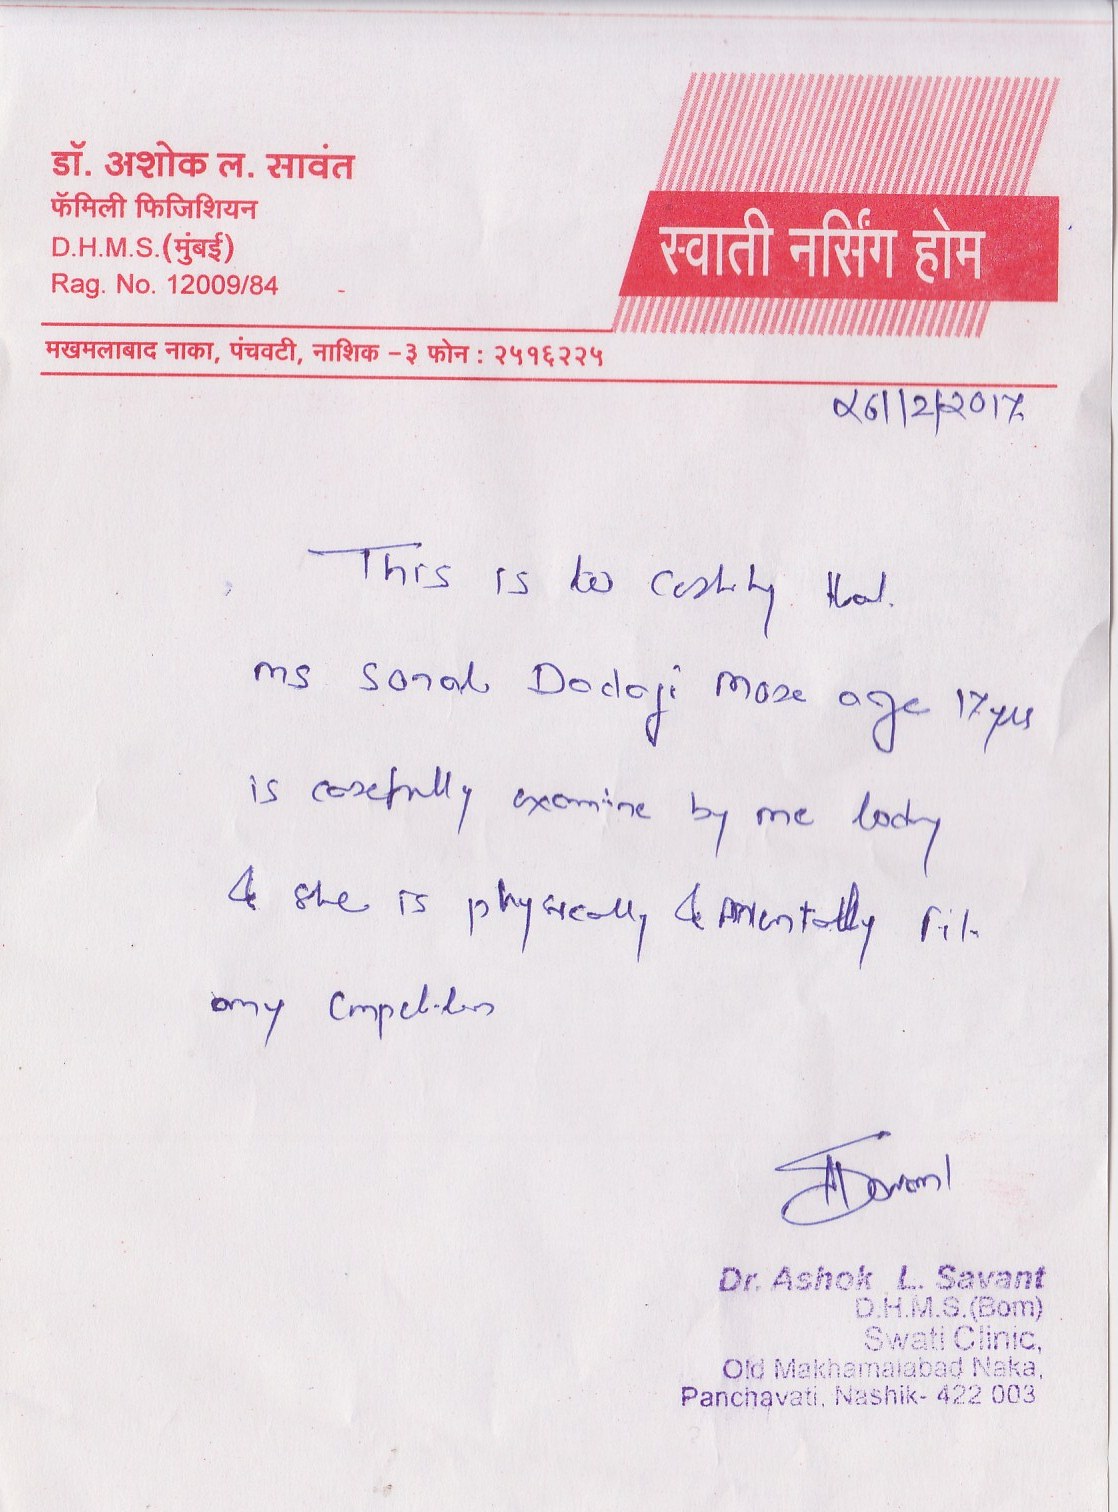 डॉ. अशोक ल. सावंत
फॅमिली फिजिशियन
D.H.M.S.(मुंबई)
Rag. No. 12009/84
स्वाती नर्सिंग होम
मखमलाबाद नाका, पंचवटी, नाशिक -३ फोन : २५१६२२५
26/12/2017
This is to certify that.
ms Sonal Dadaji More age 17 yrs
is carefully examine by me body
& she is physically & mentally fit
any competition
Dr. Ashok L. Savant
D.H.M.S.(Bom)
Swati Clinic,
Old Makhamalabad Naka,
Panchavati, Nashik- 422 003